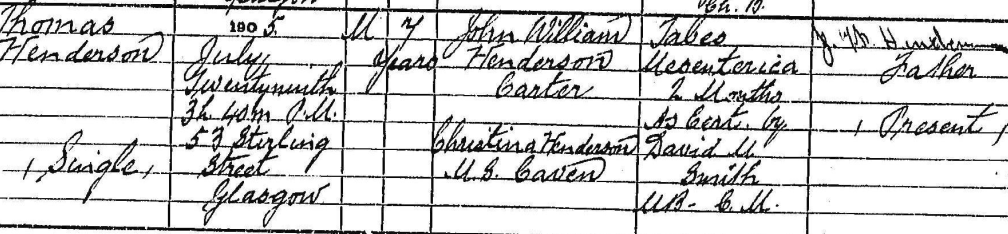 Thomas
Henderson
, Single,
1905.
July,
Twentyninth
3h. 40m P.M.
53 Stirling
Street
Glasgow
M
7
Years
John William
Henderson
Carter
Christina Henderson
M.S. Caven
Tabes
Mesenterica
2 Months
As Cert. by
David M.
Smith
M.B. C.M.
Father
, Present,